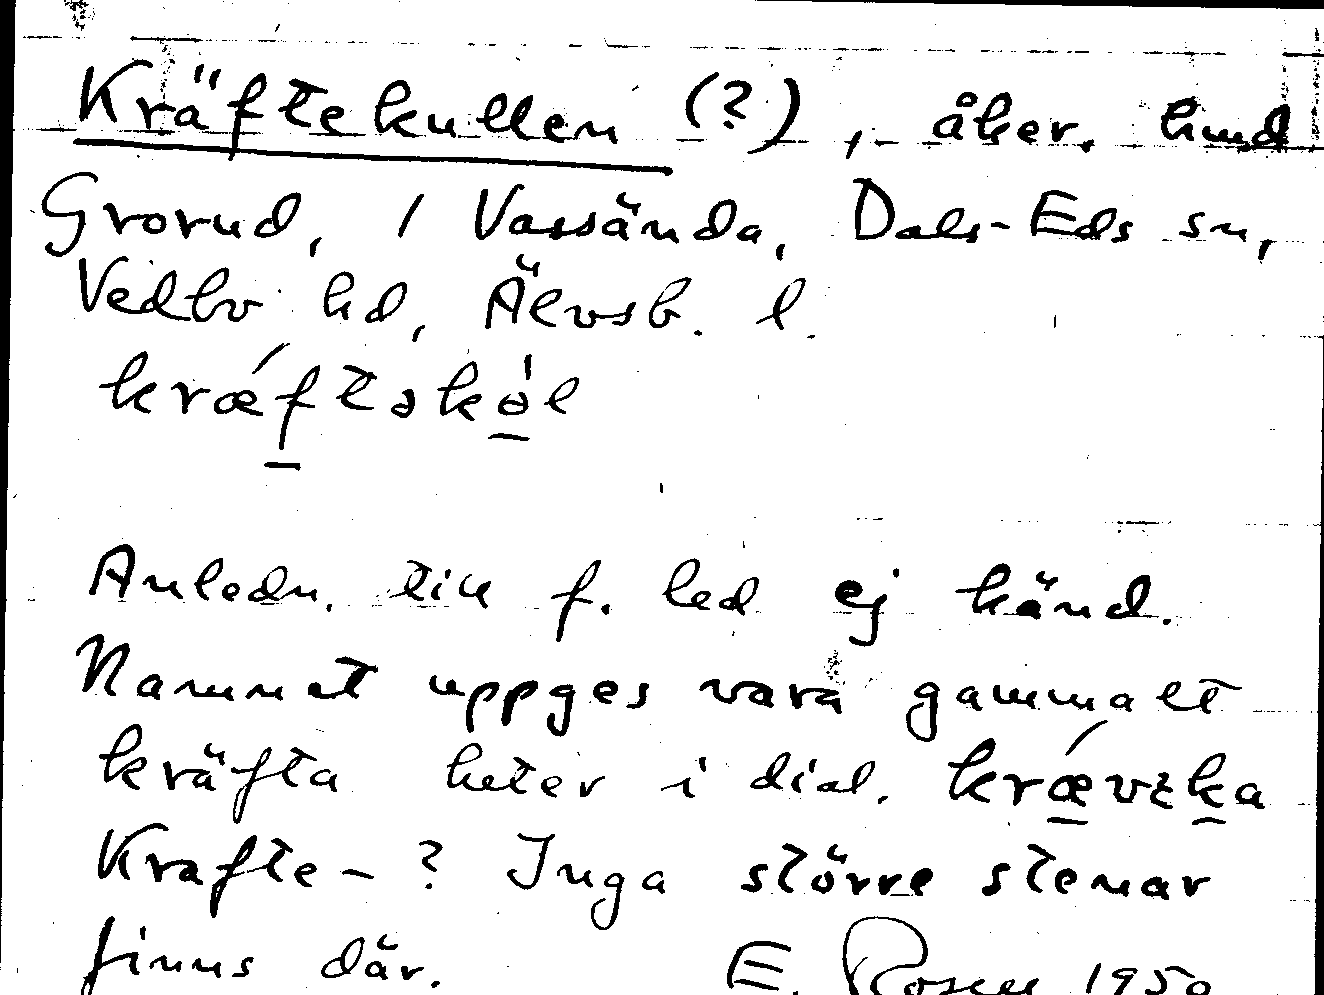 Kräftekullen (?), åker. hmd
Grorud, 1 Vassända, Dals-Eds sn,
Vedbo hd, Älvsb. l.
kræ´ftəkɵ̀l
Anledn. till f. led ej känd.
Namnet uppges vara gammalt
kräfta heter i dial. kræ´vɛka
Krafte-? Inga större stenar
finns där. E. Rosen 1950